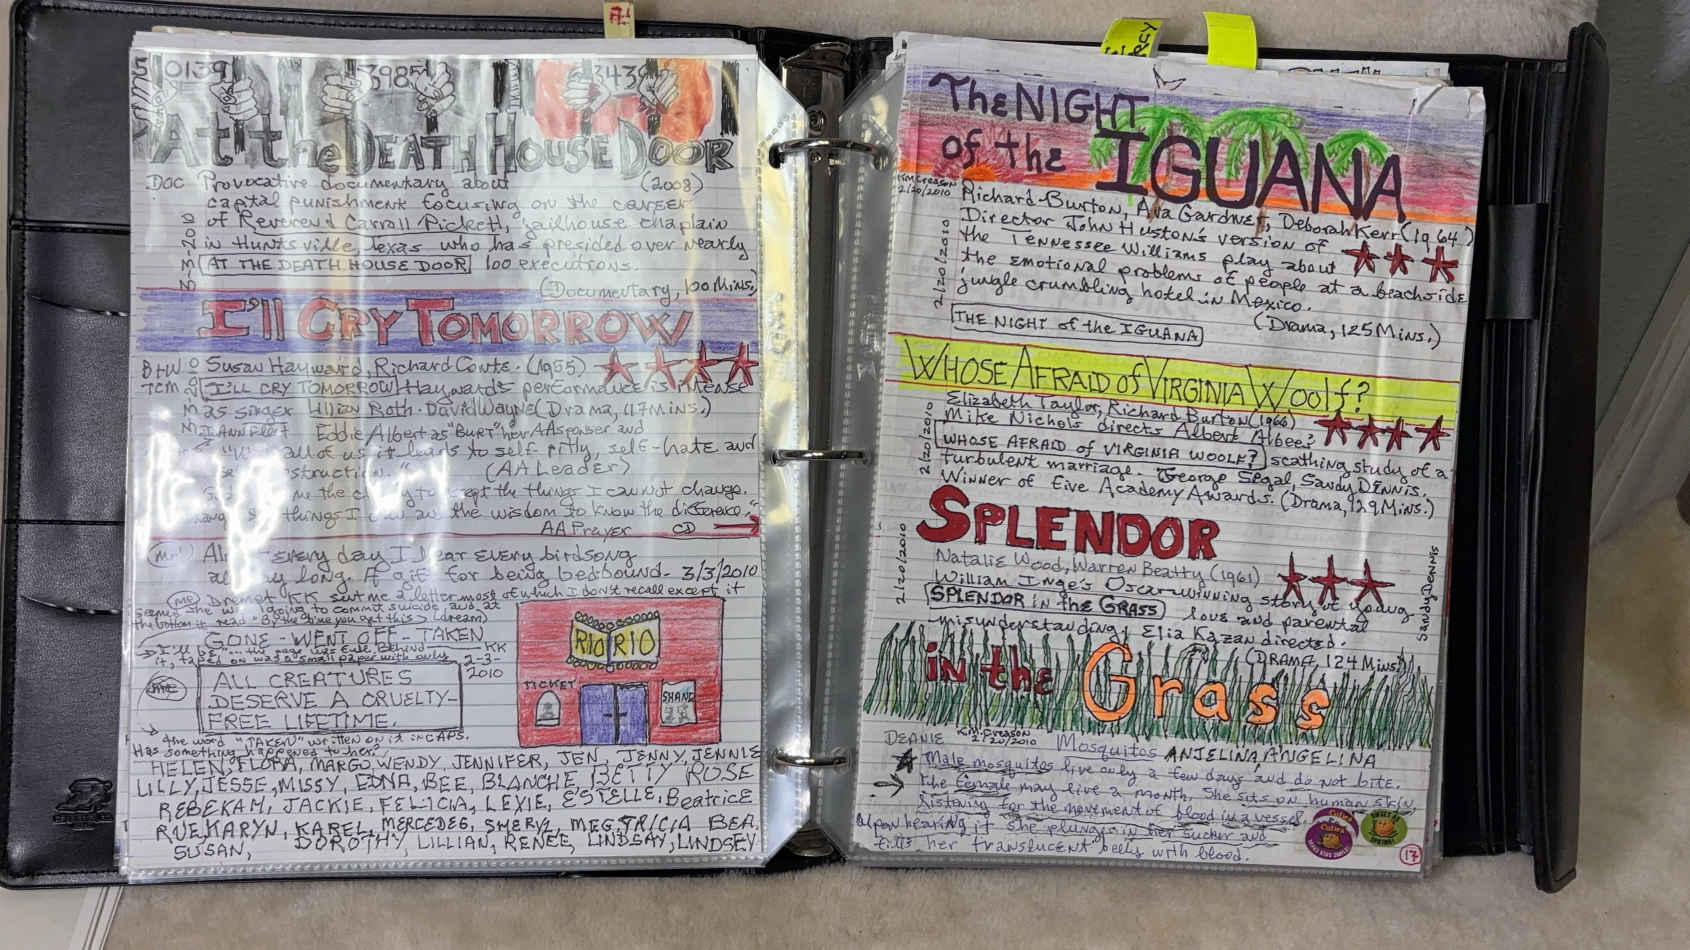 0139 3985 3439
At the DEATH HOUSE DOOR
DOC Provocative documentary about (2008)
capital punishment focusing on the career
of Reverend Carroll Pickett, jailhouse chaplain
in Huntsville, Texas who has presided over nearly
AT THE DEATH HOUSE DOOR 100 executions.
(Documentary, 100 Mins.)
I'll CRY TOMORROW
B+W Susan Hayward, Richard Conte. (1955)
TCM I'LL CRY TOMORROW Hayward's performance is intense
as singer Lillian Roth. David Wayne (Drama, 117 Mins.)
Eddie Albert as "BURT" her AA sponsor and
all of us it leads to self pity, self-hate and
(AA Leader)
me the to accept the things I can not change.
things I can and the wisdom to know the difference."
AA Prayer CD
(me) every day I hear every birdsong
all day long. A gift for being bedbound. 3/3/2010
(me) Dreamt KK sent me a letter most of which I don't recall except it
seemed she was going to commit suicide, and, at
the bottom it read "By the time you get this > (dream)
GONE - WENT OFF - TAKEN
I'll be the page was full. Behind KK
it, taped on was a small paper with only 2-3-
2010
ALL CREATURES
DESERVE A CRUELTY-
FREE LIFETIME.
RIO RIO
TICKET
SHANE
the word "TAKEN" written on it in CAPS.
Has something happened to her?
HELEN, FLORA, MARGO, WENDY, JENNIFER, JEN, JENNY, JENNIE
LILLY, JESSE, MISSY, EDNA, BEE, BLANCHE, BETTY ROSE
REBEKAH, JACKIE, FELICIA, LEXIE, ESTELLE, Beatrice
RUE KARYN, KAREL, MERCEDES, SHERYL, MEG, TRICIA BEA,
SUSAN, DOROTHY, LILLIAN, RENEE, LINDSAY, LINDSEY
The NIGHT
of the IGUANA
KMCreason
2/20/2010
Richard Burton, Ava Gardner, Deborah Kerr (1964)
Director John Huston's version of
the Tennessee Williams play about
the emotional problems of people at a beachside
jungle crumbling hotel in Mexico.
2/20/2010
THE NIGHT of the IGUANA (Drama, 125 Mins.)
WHOSE AFRAID of VIRGINIA WOOLF?
Elizabeth Taylor, Richard Burton (1966)
Mike Nichols directs Albert Albee's
WHOSE AFRAID OF VIRGINIA WOOLF? scathing study of a
turbulent marriage. George Segal, Sandy DENNIS.
Winner of five Academy Awards. (Drama, 129 Mins.)
2/20/2010
SPLENDOR
Natalie Wood, Warren Beatty (1961)
William Inge's Oscar-winning story of young
SPLENDOR in the GRASS love and parental
misunderstanding. Elia Kazan directed.
(DRAMA, 124 Mins.)
2/20/2010
Sandy DENNIS
in the Grass
DEANIE
KMCreason
2/20/2010
Mosquitos ANJELINA, ANGELINA
Male mosquitos live only a few days and do not bite.
The female may live a month. She sits on human skin,
listening for the movement of blood in a vessel.
Upon hearing it she plunges in her sucker and
fills her translucent belly with blood.
Cuties
17